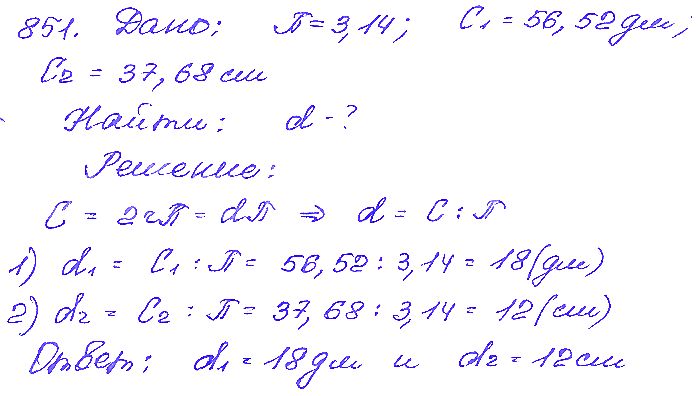 851. Дано: П = 3,14; C₁ = 56,52 дм;
C₂ = 37,68 см
Найти: d - ?
Решение:
C = 2rП = dП ⇒ d = C : П
1) d₁ = C₁ : П = 56,52 : 3,14 = 18 (дм)
2) d₂ = C₂ : П = 37,68 : 3,14 = 12 (см)
Ответ: d₁ = 18 дм и d₂ = 12 см